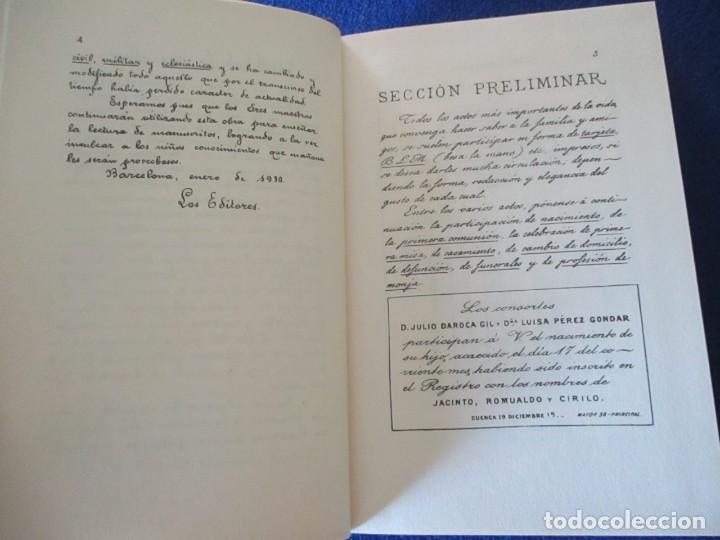 4
civil, militar y eclesiástica y se ha cambiado y
modificado todo aquello que por el transcurso del
tiempo había perdido caracter de actualidad.
Esperamos pues que los Sres maestros
continuarán utilizando esta obra para enseñar
la lectura de manuscritos, logrando a la vez
inculcar a los niños conocimientos que mañana
les serán provechosos.
Barcelona, enero de 1930.
Los Editores.
5
SECCIÓN PRELIMINAR
Todos los actos más importantes de la vida,
que convenga hacer saber a la familia y ami-
gos, se suelen participar en forma de tarjeta,
B.L.M. (besa la mano) etc. impresos, si
se desea darles mucha circulación, depen-
diendo la forma, redacción y elegancia del
gusto de cada cual.
Entre los varios actos, pónense á conti-
nuación la participación de nacimiento, de
la primera comunión, la celebración de prime-
ra misa, de casamiento, de cambio de domicilio,
de defunción, de funerales y de profesión de
monja.
Los consortes
D. JULIO DAROCA GIL Y Dña LUISA PÉREZ GONDAR
participan á V. el nacimiento de
su hijo, acaecido el día 17 del co-
rriente mes, habiendo sido inscrito en
el Registro con los nombres de
JACINTO, ROMUALDO Y CIRILO.
CUENCA 19 DICIEMBRE 19..
MAYOR 58-PRINCIPAL
todocoleccion
todocoleccion.net